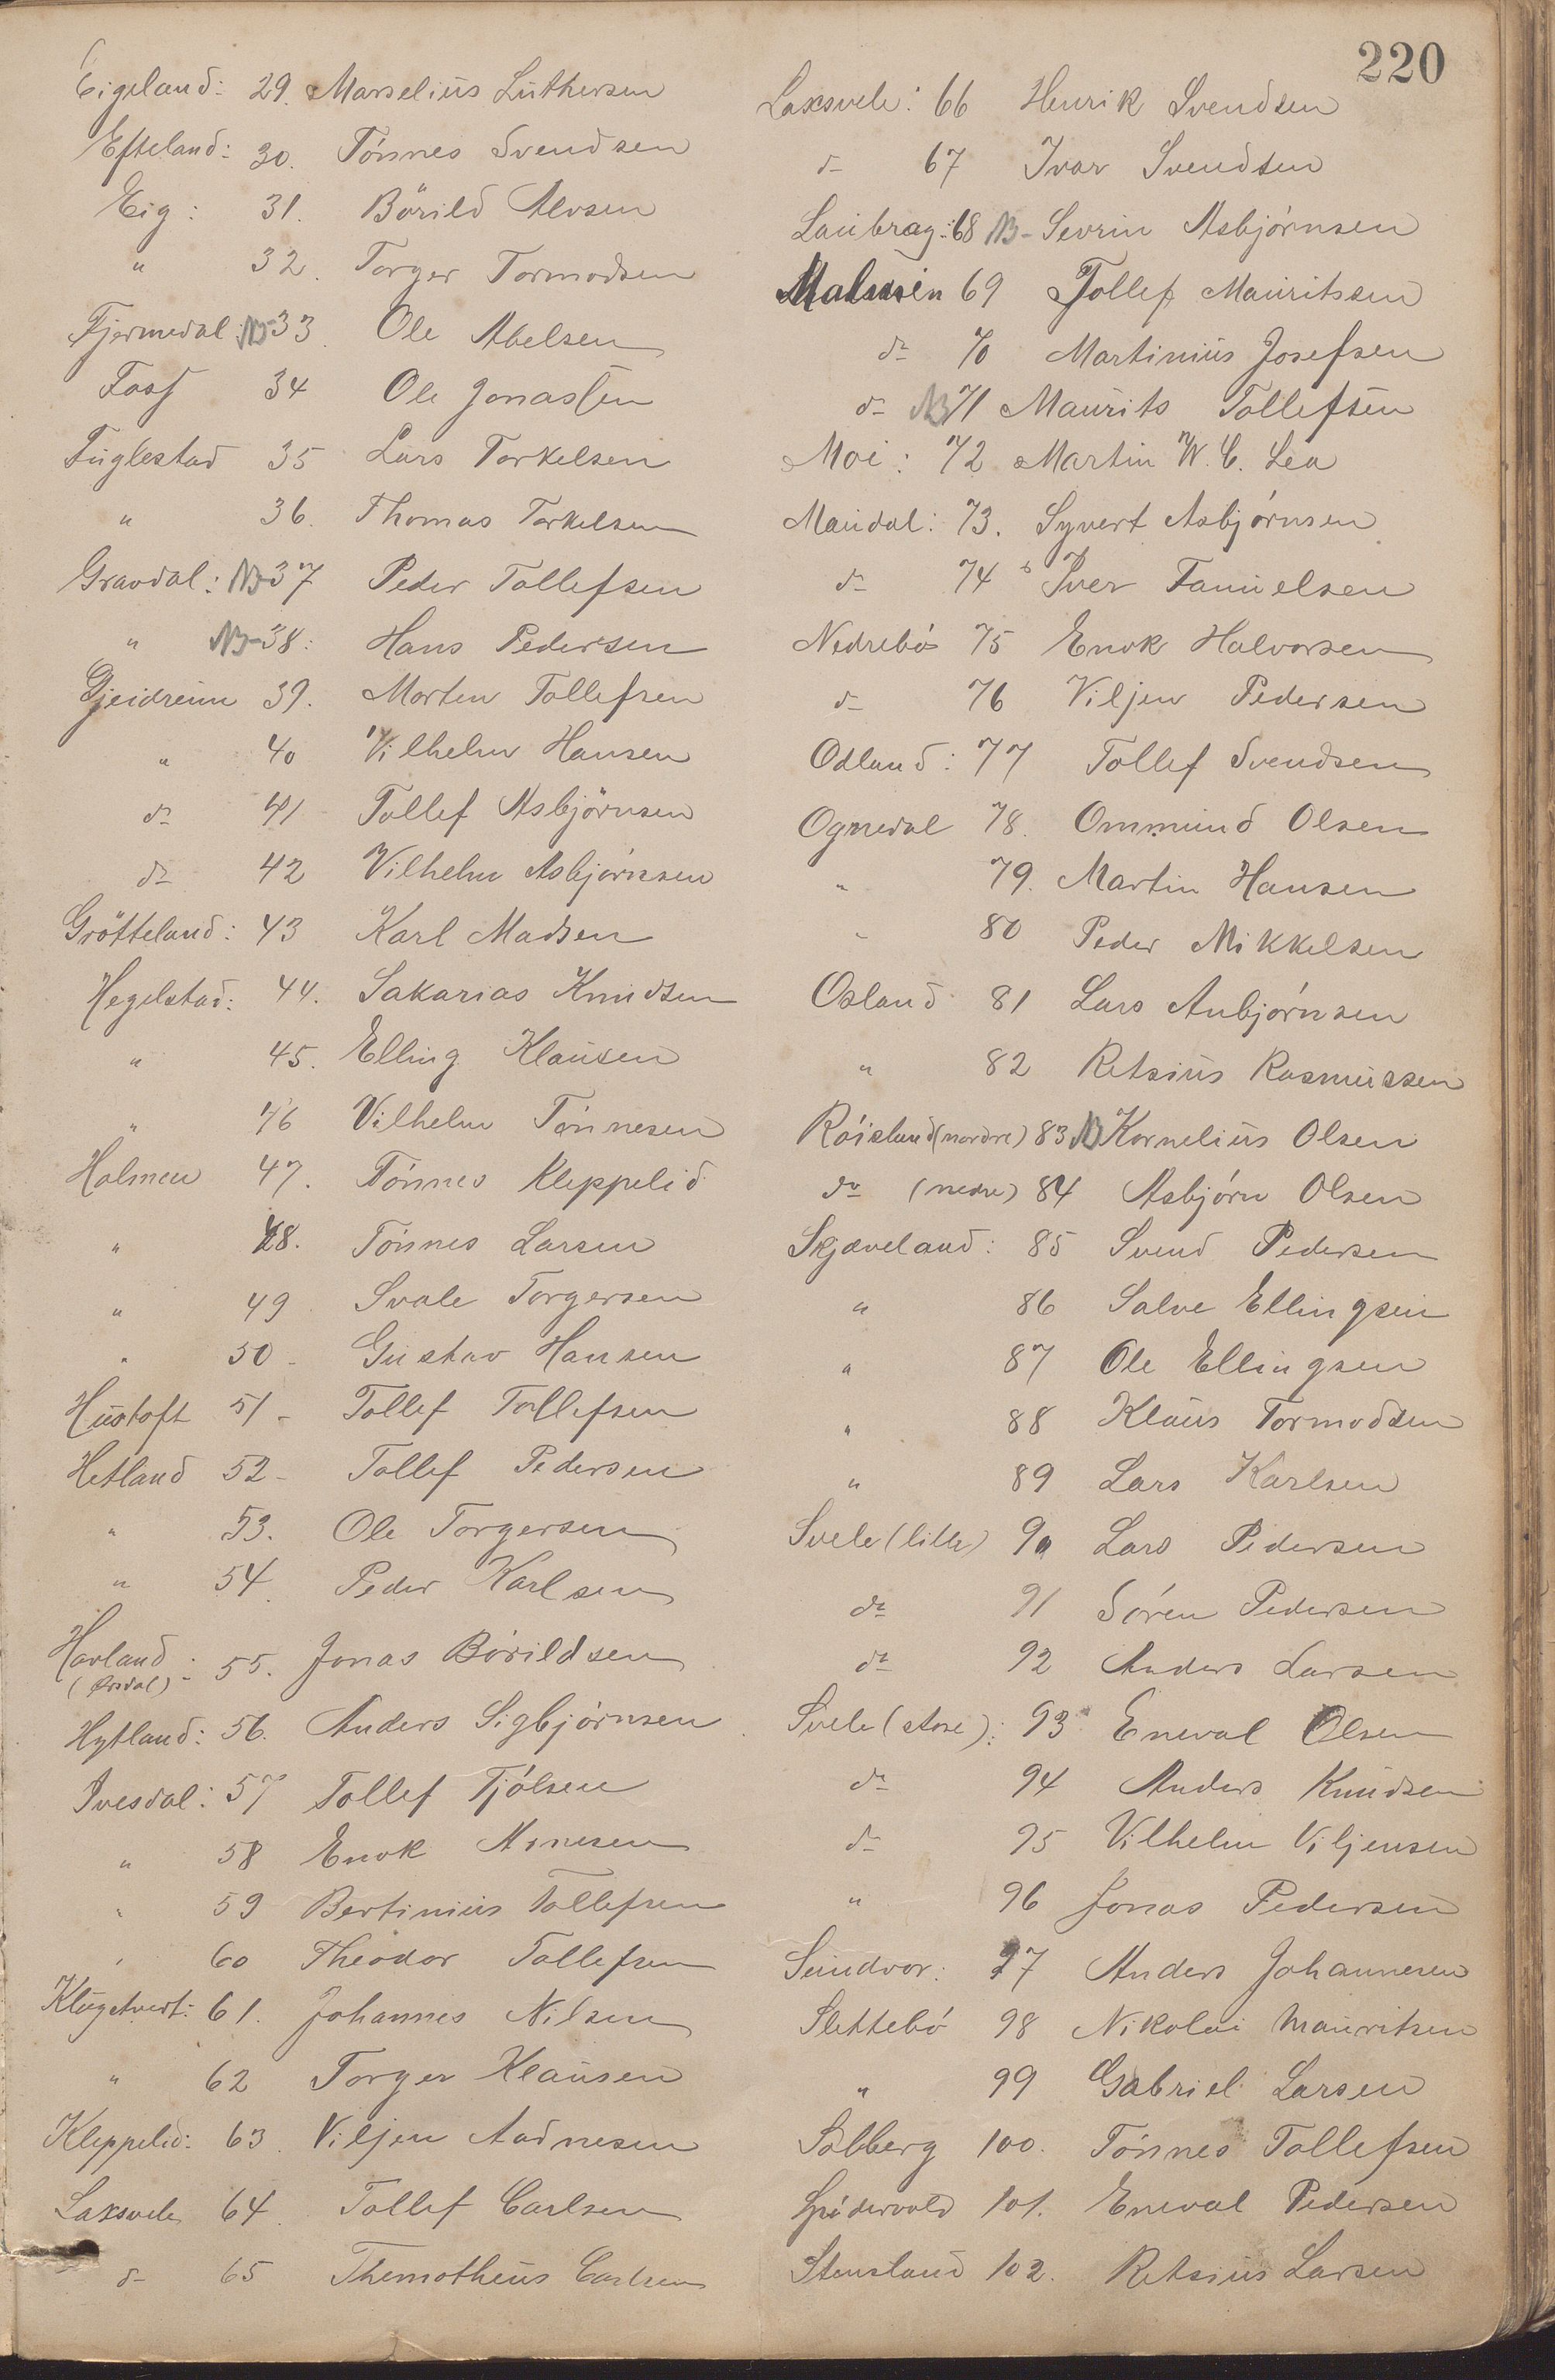 220
Eigeland: 29. Marselius Luthersen
Efteland: 30. Tónnes Svendsen
Eig: 31. Börild Alvsen
" 32. Torger Tormodsen
Fjermedal: NB 33. Ole Abelsen
Fosf 34 Ole Jonassen
Fuglestad 35 Lars Torkelsen
" 36. Thomas Torkelsen
Gravdal: NB 37 Peder Tollefsen
" NB 38: Hans Pedersen
Gjeidreim 39. Morten Tollefsen
" 40 Vilhelm Hansen
do 41 Tollef Asbjörnsen
do 42 Vilhelm Asbjórnsen
Grötteland: 43 Karl Madsen
Hegelstad: 44. Sakarias Knudsen
" 45. Elling Klausen
" 46 Vilhelm Tónnesen
Holmen 47. Tónnes Kleppelid
" 48. Tónnes Larsen
" 49 Svale Torgersen
" 50 - Gustav Hansen
Hustoft 51 - Tollef Tollefsen
Hetland 52 - Tollef Pedersen
" 53. Ole Torgersen
" 54. Peder Karlsen
Havland: 55. Jonas Bórildsen
(Ørsdal)
Hytland: 56. Anders Sigbjórnsen
Ivesdal: 57 Tollef Tjólsen
" 58 Enok Arnesen
" 59 Bertinius Tollefsen
" 60 Theodor Tollefsen
Klugetveit: 61. Johannes Nilsen
" 62 Torger Klausen
Kleppelid: 63. Viljen Aadnesen
Laxsvele 64. Tollef Carlsen
d- 65 Themotheus Carlsen
Laxsvele: 66 Henrik Svendsen
d- 67 Ivar Svendsen
Laubrag: 68 NB - Sevrin Asbjórnsen
69 Tollef Mauritssen
do 70 Martinius Josefsen
d- NB 71 Maurits Tollefsen
Moi: 72 Martin W. C. Lea
Maudal: 73. Syvert Asbjórnsen
do 74 Iver Tanielsen
Nedrebó 75 Enok Halvorsen
d- 76 Viljen Pedersen
Odland: 77 Tollef Svendsen
Ognedal 78. Ommund Olsen
" 79. Martin Hansen
" 80 Peder Mikkelsen
Osland 81 Lars Anbjórnsen
" 82 Retsius Rasmussen
Róisland (nordre) 83 NB Kornelius Olsen
do (nedre) 84 Asbjórn Olsen
Skjæveland: 85 Svend Pedersen
" 86 Salve Ellingsen
" 87 Ole Ellingsen
" 88 Klaus Tormodsen
" 89 Lars Karlsen
Svele (lille) 90 Lars Pedersen
do 91 Sóren Pedersen
do 92 Anders Larsen
Svele (store): 93 Eneval Olsen
do 94 Anders Knudsen
d- 95 Vilhelm Viljensen
" 96 Jonas Pedersen
Sundvor: 97 Anders Johannesen
Slettebó 98 Nikolai Mauritsen
" 99 Gabriel Larsen
Solberg 100. Tónnes Tollefsen
101. Eneval Pedersen
Stensland 102. Retsius Larsen